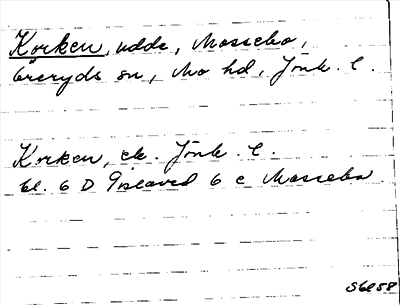 Korken, udde, Mossebo,
Öreryds sn, Mo hd, Jönk. l.
Korken, ek. Jönk. l.
bl. 6 D Gislaved 6 c Mossebo
S6258